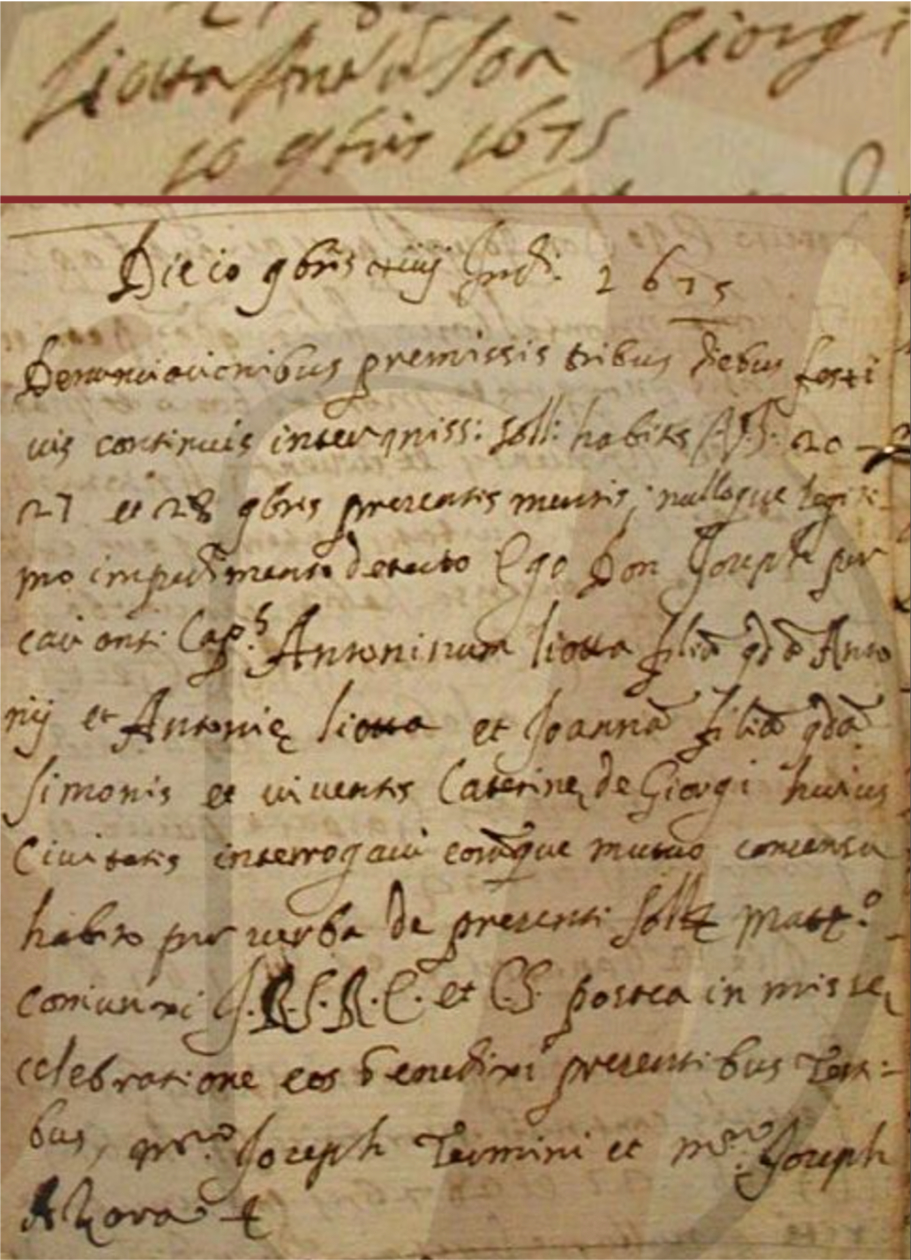 liotta Joā Giorgi
10 9bris 1675
Die io 9bris xiiij Indi: 1675
Denunciationibus premissis tribus diebus festi
uis continuis inter miss: soll: habitis 20 –
27 et 28 9bris presentis mensis; nulloque legiti-
mo impedimento detecto Ego Don Joseph per
caui onti Capp: Antoninum liotta filiū qdā Anto
nij et Antonię liotta et Joannā filiā qdā
Simonis et uiuentis Caterinę de Giorgi huius
Ciuitatis interrogaui eorūque mutuo consensu
habito per uerba de presenti soll matr:o
coniunxi J.R.S.R.C. et C.S. postea in misse
celebratione eos benedixi presentibus Testi-
bus, mro: Joseph Termini et mro: Joseph